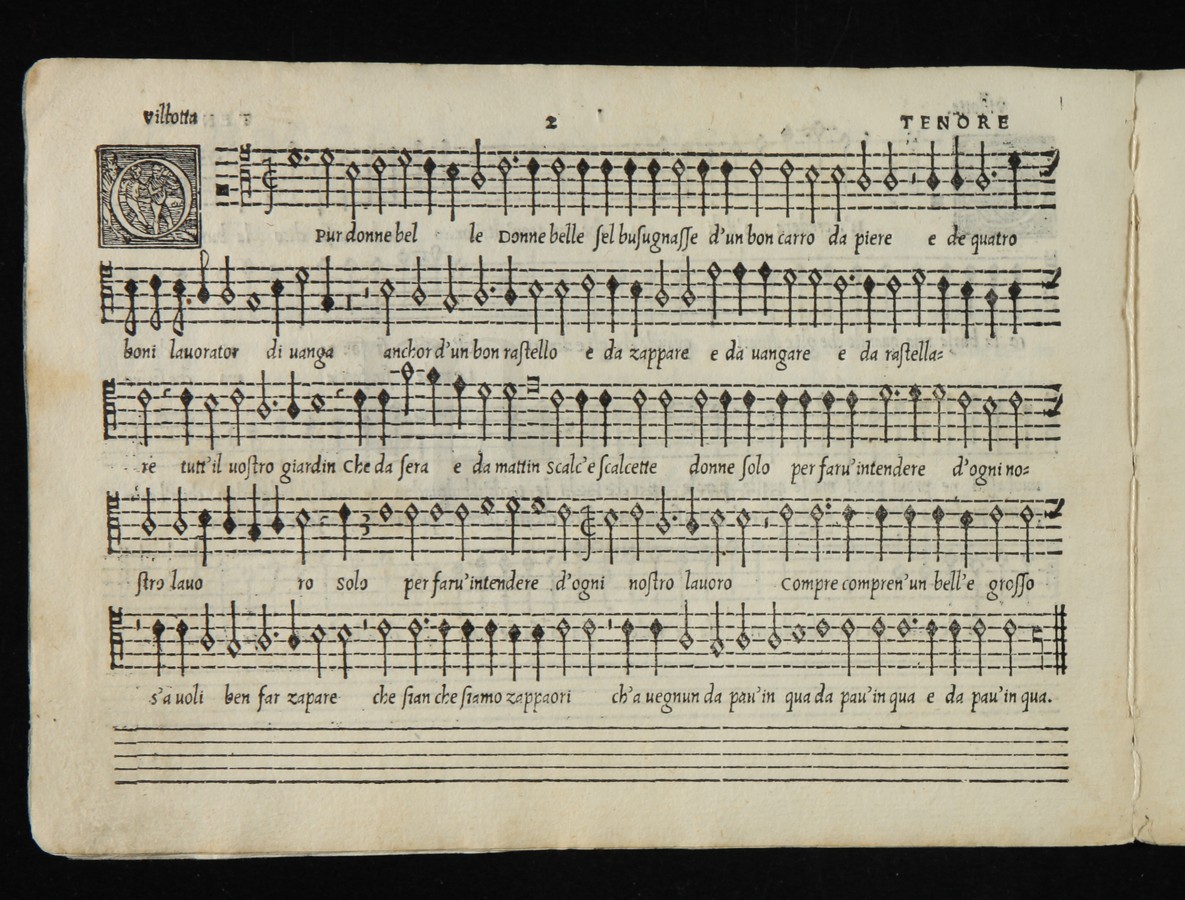 villotta 2 TENORE
O Pur donne bel le Donne belle sel busugnasse d'un bon carro da piere e de quatro
boni lauorator di uanga anchor d'un bon rastello e da zappare e da uangare e da rastella=
re tutt'il uostro giardin Che da sera e da mattin Scalc'e scalcette donne solo per faru'intendere d'ogni no=
3
stro lauo ro solo per faru'intendere d'ogni nostro lauoro Compre compren'un bell'e grosso
s'a uoli ben far zapare che sian che siamo zappaori ch'a uegnun da pau'in qua da pau'in qua e da pau'in qua.